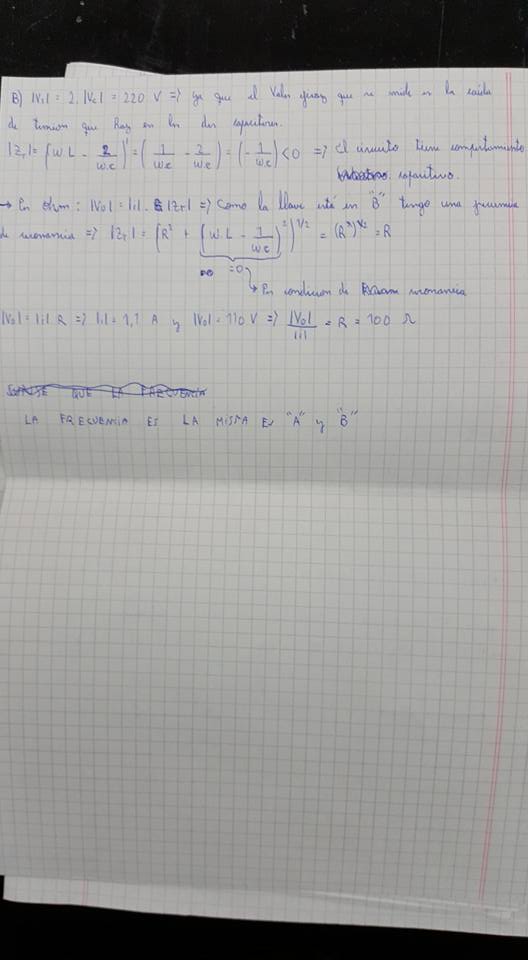 B) |V₁| = 2. |Vc| = 220 V => ya que el Valor eficaz que se mide es la caída
de tension que hay en los dos capacitores.
|Z₁| = (W L - 2/W.C)¹ = (1/WC - 2/WC) = (- 1/WC) < 0 => El circuito tiene comportamiento
capacitivo.
→ Por Ohm: |V₀| = |i|. |Z₁| => Como la llave está en "B" tengo una frecuencia
de resonancia => |Z₁| = (R² + (W.L - 1/W.C)²)^1/2 = (R²)^1/2 = R
=0
→ Por condicion de resonancia
|V₀| = |i| R => |i| = 1,1 A y |V₀| = 110 V => |V₀|/|i| = R = 100 Ω
QUE LA FRECUENCIA
LA FRECUENCIA ES LA MISMA EN "A" y "B"